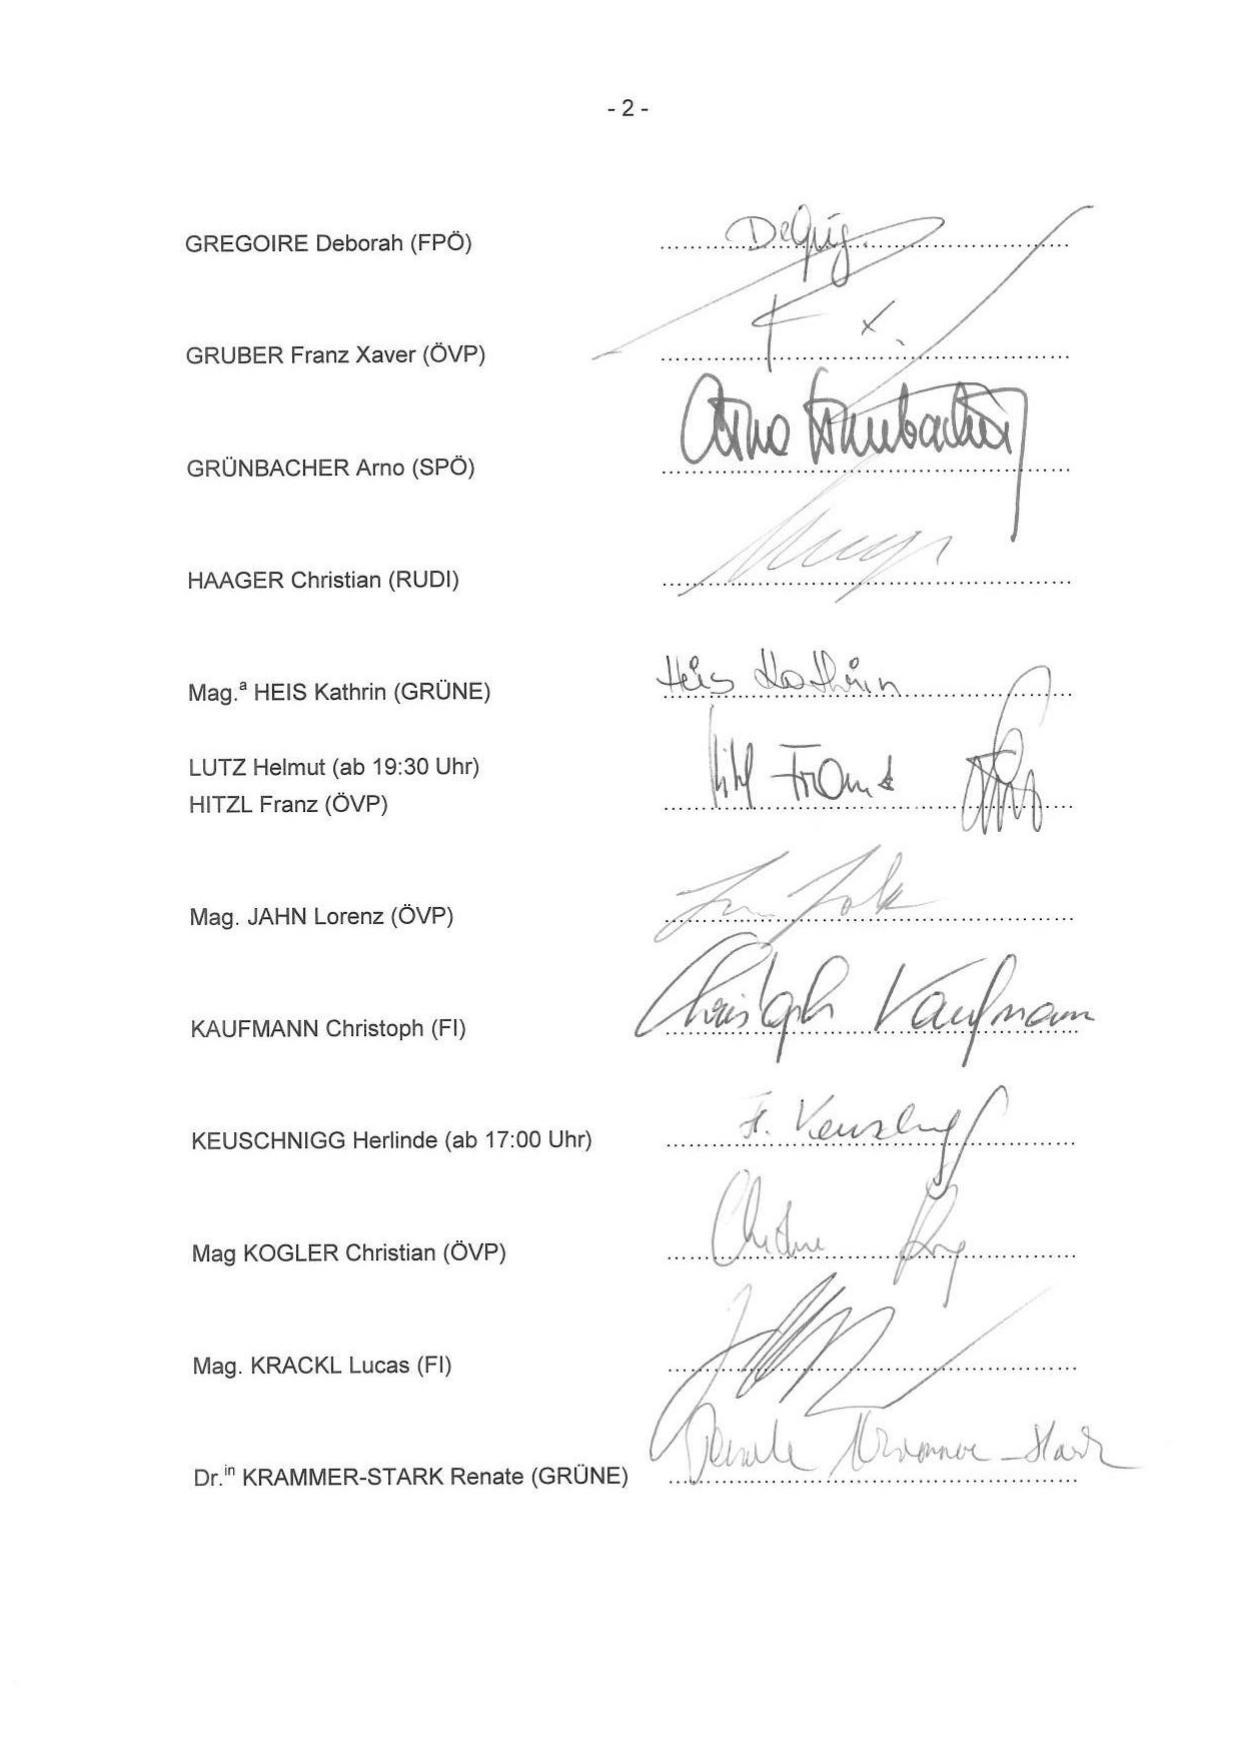 - 2 -
GREGOIRE Deborah (FPÖ)
GRUBER Franz Xaver (ÖVP)
GRÜNBACHER Arno (SPÖ)
HAAGER Christian (RUDI)
Mag.ª HEIS Kathrin (GRÜNE) Heis Kathrin
LUTZ Helmut (ab 19:30 Uhr)
HITZL Franz (ÖVP) Hitzl Franz
Mag. JAHN Lorenz (ÖVP)
KAUFMANN Christoph (FI) Christoph Kaufmann
KEUSCHNIGG Herlinde (ab 17:00 Uhr)
Mag KOGLER Christian (ÖVP)
Mag. KRACKL Lucas (FI)
Dr.ⁱⁿ KRAMMER-STARK Renate (GRÜNE) Renate Krammer-Stark